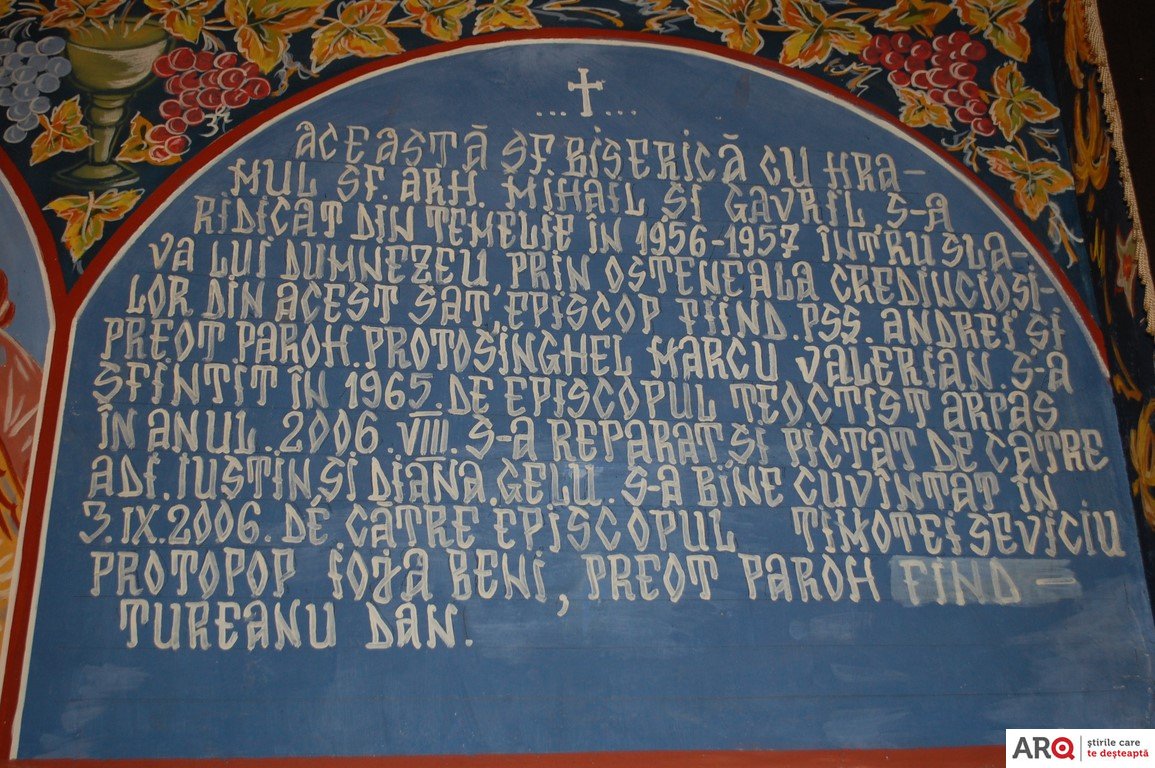 ACEASTĂ SF. BISERICĂ CU HRA-
MUL SF. ARH. MIHAIL SI GAVRIL, S-A
RIDICAT DIN TEMELIE ÎN 1956-1957 ÎNTRU SLA-
VA LUI DUMNEZEU, PRIN OSTENEALA CREDINCIOSI-
LOR DIN ACEST SAT, EPISCOP FIIND. PSS. ANDREI SI
PREOT. PAROH. PROTOSINGHEL MARCU VALERIAN. S-A
SFINTIT ÎN 1965. DE EPISCOPUL TEOCTIST ARPAS
ÎN ANUL. 2006. VIII. S-A REPARAT SI PICTAT DE CATRE
ADI. IUSTIN SI DIANA. GELU. S-A BINE CUVÎNTAT ÎN
3.IX.2006. DE CĂTRE EPISCOPUL TIMOTEI SEVICIU
PROTOPOP FOJA BENI, PREOT PAROH FIND -
TUREANU DAN.
ARQ știrile care
te deșteaptă